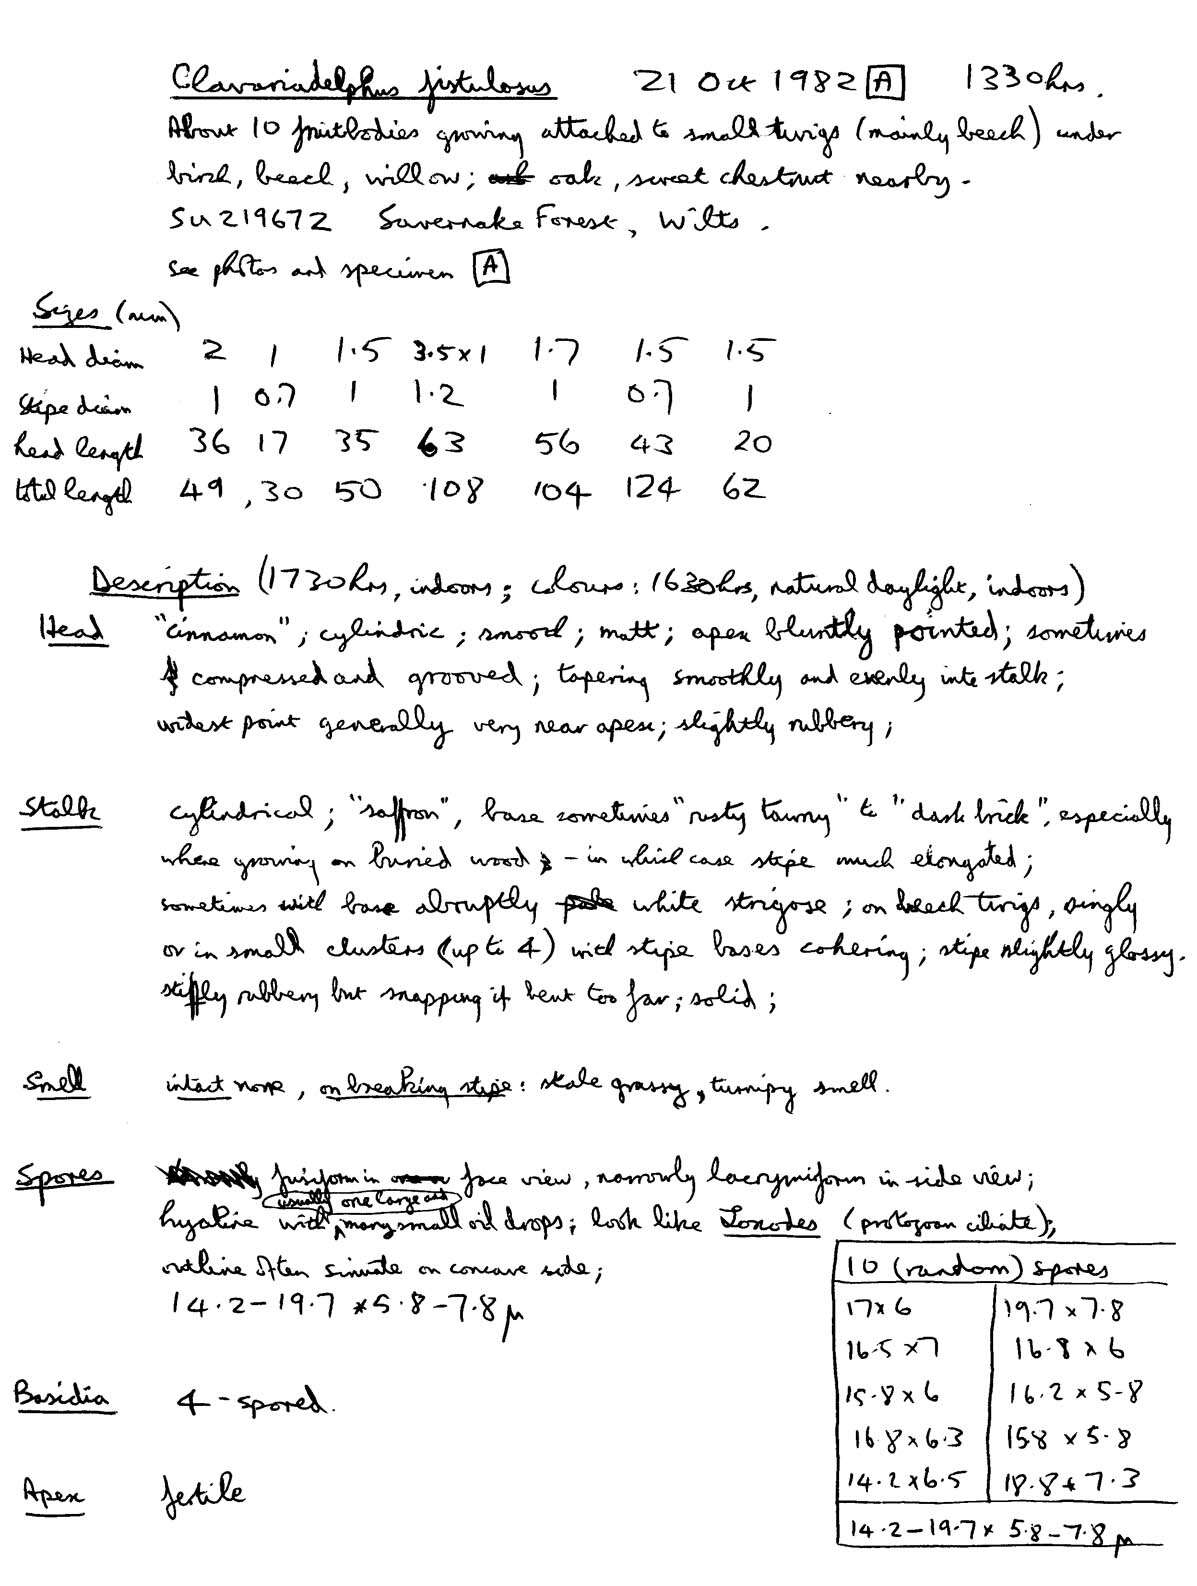 Clavariadelphus fistulosus 21 Oct 1982 A 1330hrs.
About 10 fruitbodies growing attached to small twigs (mainly beech) under
birch, beech, willow; oak, sweet chestnut nearby.
SU 219672 Savernake Forest, Wilts.
see photos and specimen A
Sizes (mm)
Head diam 2 1 1.5 3.5 x 1 1.7 1.5 1.5
Stipe diam 1 0.7 1 1.2 1 0.7 1
head length 36 17 35 63 56 43 20
total length 49, 30 50 108 104 124 62
Description (1730hrs, indoors; colours: 1630hrs, natural daylight, indoors)
Head "cinnamon"; cylindric; smooth; matt; apex bluntly pointed; sometimes
compressed and grooved; tapering smoothly and evenly into stalk;
widest point generally very near apex; slightly rubbery;
Stalk cylindrical; "saffron", base sometimes "rusty tawny" to "dark brick", especially
where growing on buried wood - in which case stipe much elongated;
sometimes with base abruptly white strigose; on beech twigs, singly
or in small clusters (up to 4) with stipe bases cohering; stipe slightly glossy.
stiffly rubbery but snapping if bent too far; solid;
Smell intact none, on breaking stipe: stale grassy, turnipy smell.
Spores fusiform in face view, narrowly lacrymiform in side view;
usually one large and
hyaline with many small oil drops; look like Loxodes (protozoan ciliate);
outline often sinuate on concave side;
14.2-19.7 x 5.8-7.8 μ
10 (random) spores
17 x 6 19.7 x 7.8
16.5 x 7 16.8 x 6
15.8 x 6 16.2 x 5.8
16.8 x 6.3 15.8 x 5.8
14.2 x 6.5 18.8 x 7.3
14.2-19.7 x 5.8-7.8 μ
Basidia 4-spored.
Apex fertile